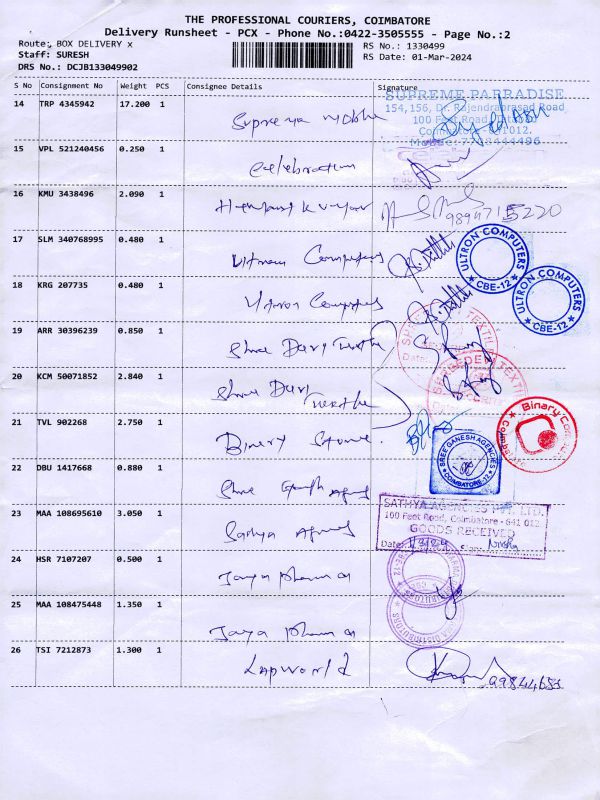 THE PROFESSIONAL COURIERS, COIMBATORE
Delivery Runsheet - PCX - Phone No.:0422-3505555 - Page No.:2
Route: BOX DELIVERY x
Staff: SURESH
DRS No.: DCJB133049902
RS No.: 1330499
RS Date: 01-Mar-2024
S No Consignment No Weight PCS Consignee Details Signature
14 TRP 4345942 17.200 1
SUPREME PARRADISE
154,156, Dr. Rajendraprasad Road
100 Feet Road, Tatabad
Coimbatore - 641012.
15 VPL 521240456 0.250 1 Celebration
16 KMU 3438496 2.090 1
17 SLM 340768995 0.480 1 Computers
ULTRON COMPUTERS
CBE-12
18 KRG 207735 0.480 1 Computers
ULTRON COMPUTERS
CBE-12
19 ARR 30396239 0.850 1 Shree Devi Textile
20 KCM 50071852 2.840 1 Shree Devi Textile
21 TVL 902268 2.750 1 Binary Store.
Binary
22 DBU 1417668 0.880 1 Shree Ganesh Agency
SREE GANESH AGENCIES
COIMBATORE-12
23 MAA 108695610 3.050 1 Sathya Agency
SATHYA AGENCIES PVT. LTD.
100 Feet Road, Coimbatore - 641 012.
GOODS RECEIVED
Date: Sign:
24 HSR 7107207 0.500 1 Jaya Pharma
25 MAA 108475448 1.350 1 Jaya Pharma
26 TSI 7212873 1.300 1 Lapworld